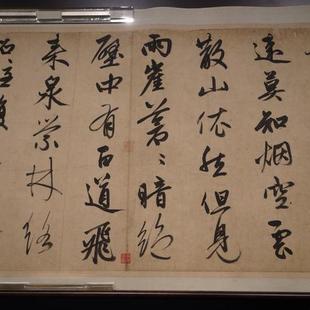 遠莫知烟空雲
散山依然但見
兩崖蒼〻暗絕
中有百道飛
來泉縈林絡
石隱復